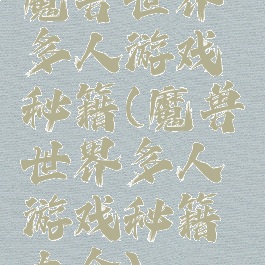 魔兽世界
多人游戏
秘籍(魔兽
世界多人
游戏秘籍
大全)